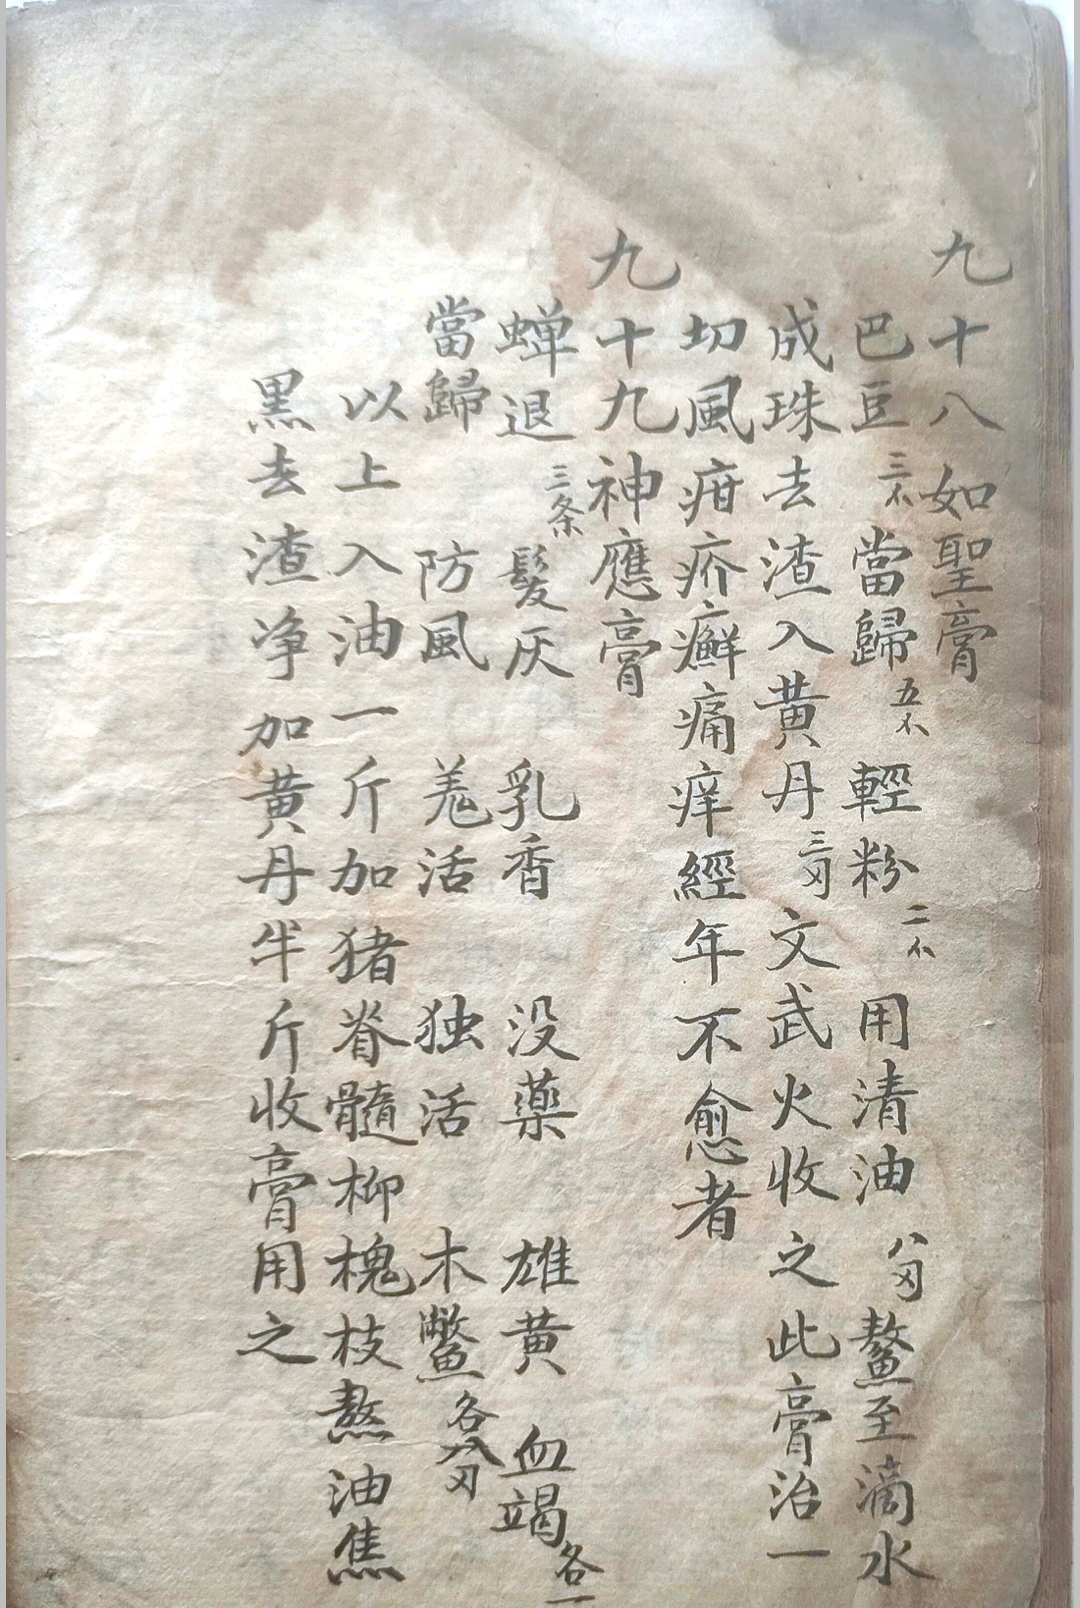 九十八如聖膏
巴豆三不當歸五不輕粉二不用清油八匁鰲至滴水
成珠去渣入黄丹三匁文武火收之此膏治一
切風疳疥癬痛痒經年不愈者
九十九神應膏
蝉退三条髮灰乳香没藥雄黄血竭各一
當歸防風羗活独活木鱉各八匁
以上入油一斤加猪脊髓柳槐枝熬油焦
黑去渣净加黄丹半斤收膏用之